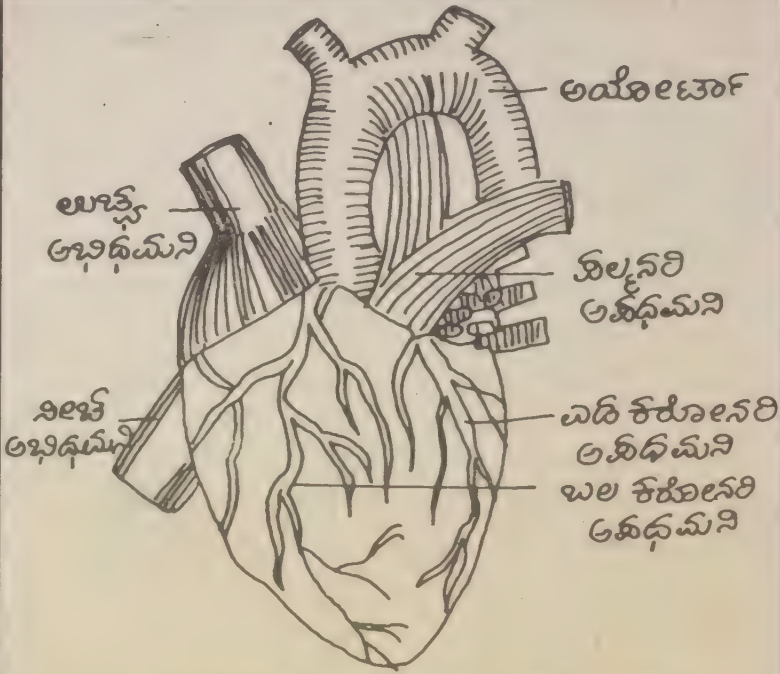 ಅಯೋರ್ಟಾ
ಉಚ್ಛ
ಅಭಿಧಮನಿ
ಪಲ್ಮನರಿ
ಅಪಧಮನಿ
ನೀಚ
ಅಭಿಧಮನಿ
ಎಡ ಕರೋನರಿ
ಅಪಧಮನಿ
ಬಲ ಕರೋನರಿ
ಅಪಧಮನಿ